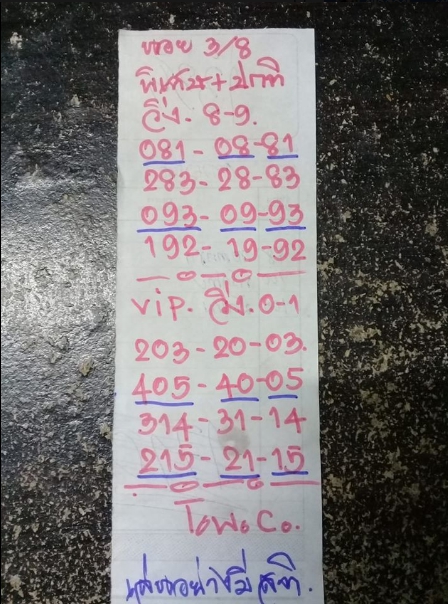 ฮานอย 3/8
พิเศษ+ปกติ
วิ่ง. 8-9.
081-08-81
283-28-83
093-09-93
192-19-92
vip. วิ่ง.0-1
203-20-03.
405-40-05
314-31-14
215-21-15
Co.
เล่นอย่างมีสติ.